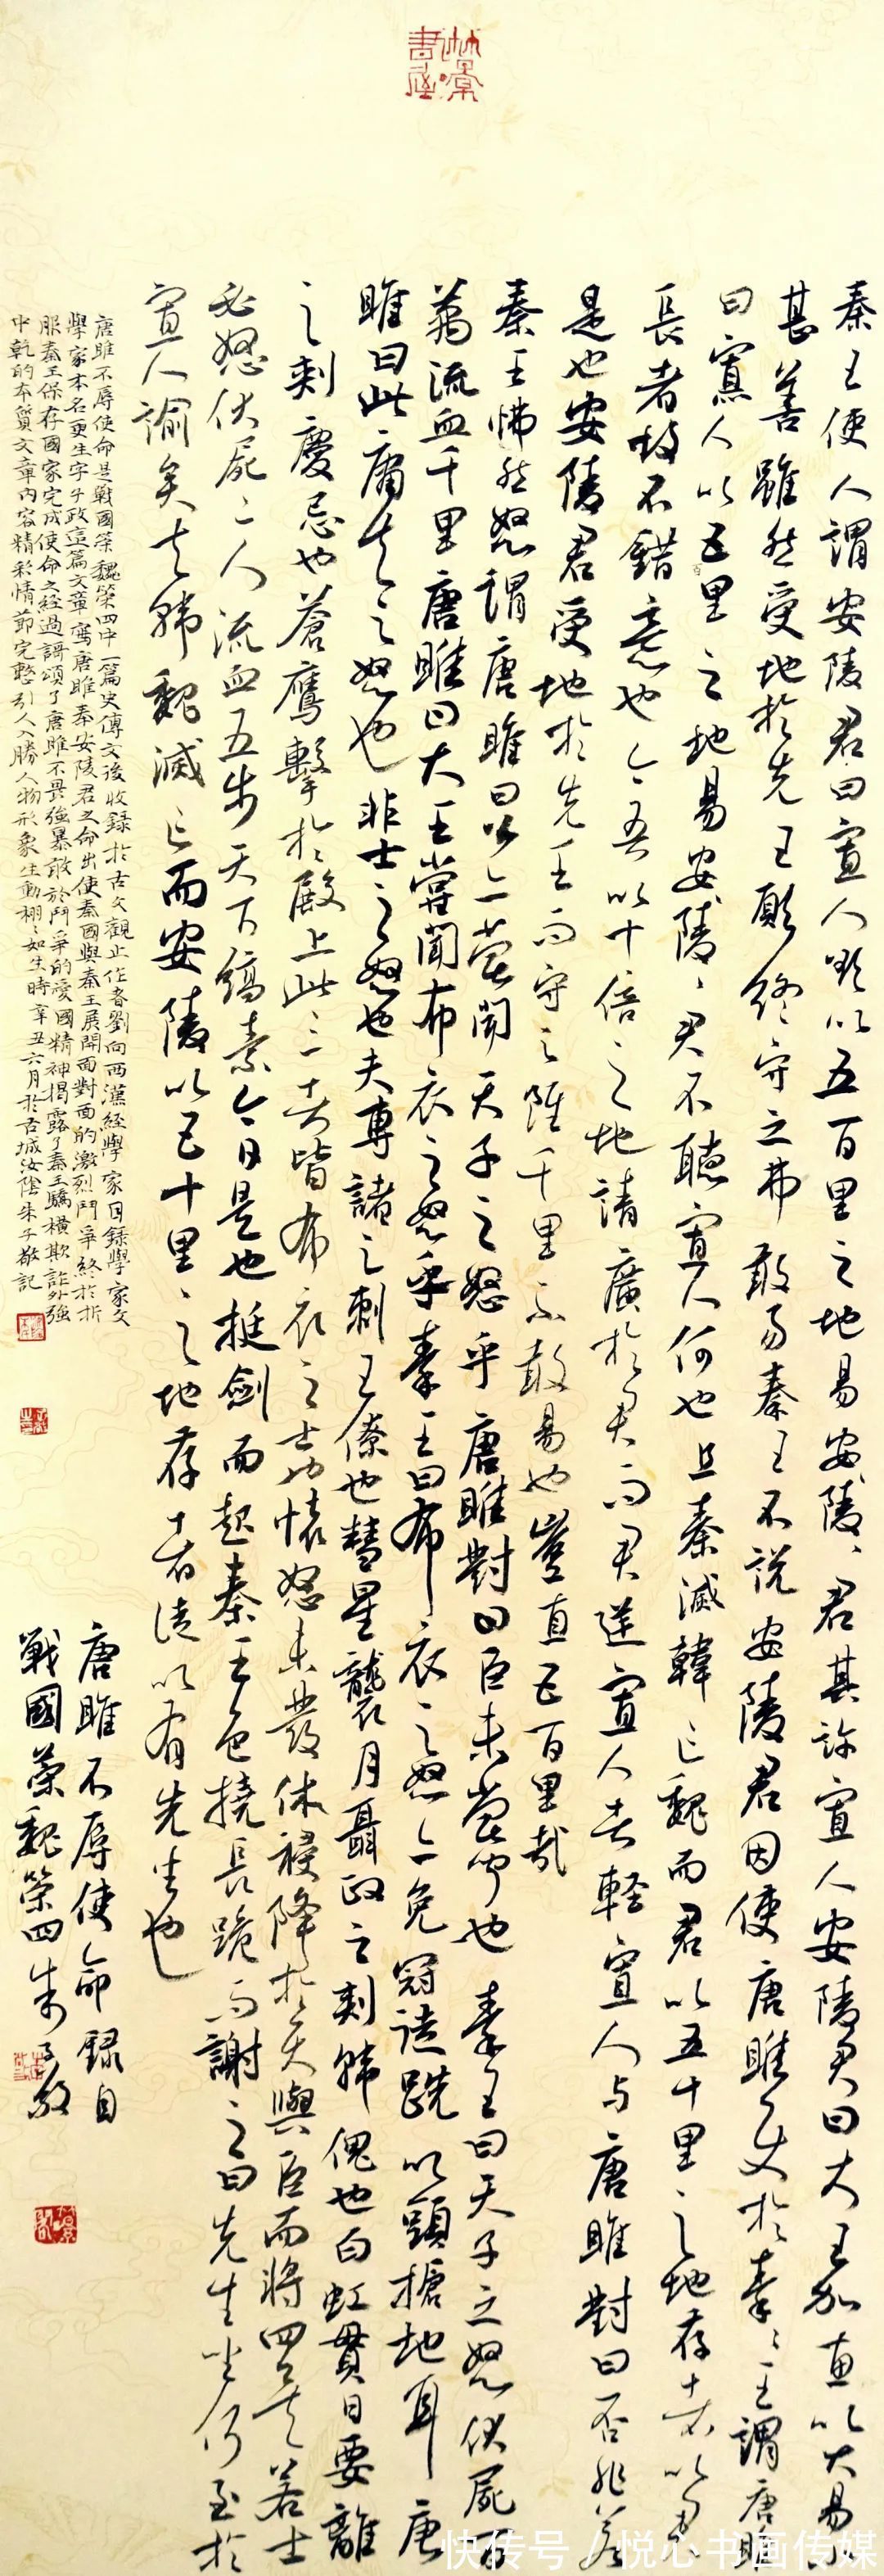 秦王使人謂安陵君曰寡人欲以五百里之地易安陵、君其許寡人安陵君曰大王加惠以大易小
甚善雖然受地於先王願終守之弗敢易秦王不説安陵君因使唐雎使於秦、王謂唐雎
曰寡人以五百里之地易安陵、君不聽寡人何也且秦滅韓亡魏而君以五十里之地存者以君為
長者故不錯意也今吾以十倍之地請廣於君而君逆寡人者輕寡人与唐雎對曰否非若
是也安陵君受地於先王而守之雖千里不敢易也豈直五百里哉
秦王怫然怒謂唐雎曰公亦嘗聞天子之怒乎唐雎對曰臣未嘗聞也秦王曰天子之怒伏屍百
萬流血千里唐雎曰大王嘗聞布衣之怒乎秦王曰布衣之怒亦免冠徒跣以頭搶地耳唐
雎曰此庸夫之怒也非士之怒也夫專諸之刺王僚也彗星襲月聶政之刺韓傀也白虹貫日要離
之刺慶忌也蒼鷹擊於殿上此三者皆布衣之士也懷怒未發休祲降於天與臣而將四矣若士
必怒伏屍二人流血五步天下縞素今日是也挺劍而起秦王色撓長跪而謝之曰先生坐何至於
寡人諭矣夫韓魏滅亡而安陵以五十里之地存者徒以有先生也
唐雎不辱使命錄自
戰國策魏策四朱子敬
唐雎不辱使命是戰國策魏策四中一篇史傳文後收録於古文觀止作者劉向西漢經學家目録學家文
學家本名更生字子政這篇文章寫唐雎奉安陵君之命出使秦國與秦王展開面對面的激烈鬥爭終於折
服秦王保存國家完成使命之經過謌頌了唐雎不畏強暴敢於鬥爭的愛國精神揭露了秦王驕横欺詐外強
中乾的本質文章内容精彩情節完整引人入勝人物形象生動栩、如生時辛丑六月於古城汝陰朱子敬記
快传号/悦心书画传媒